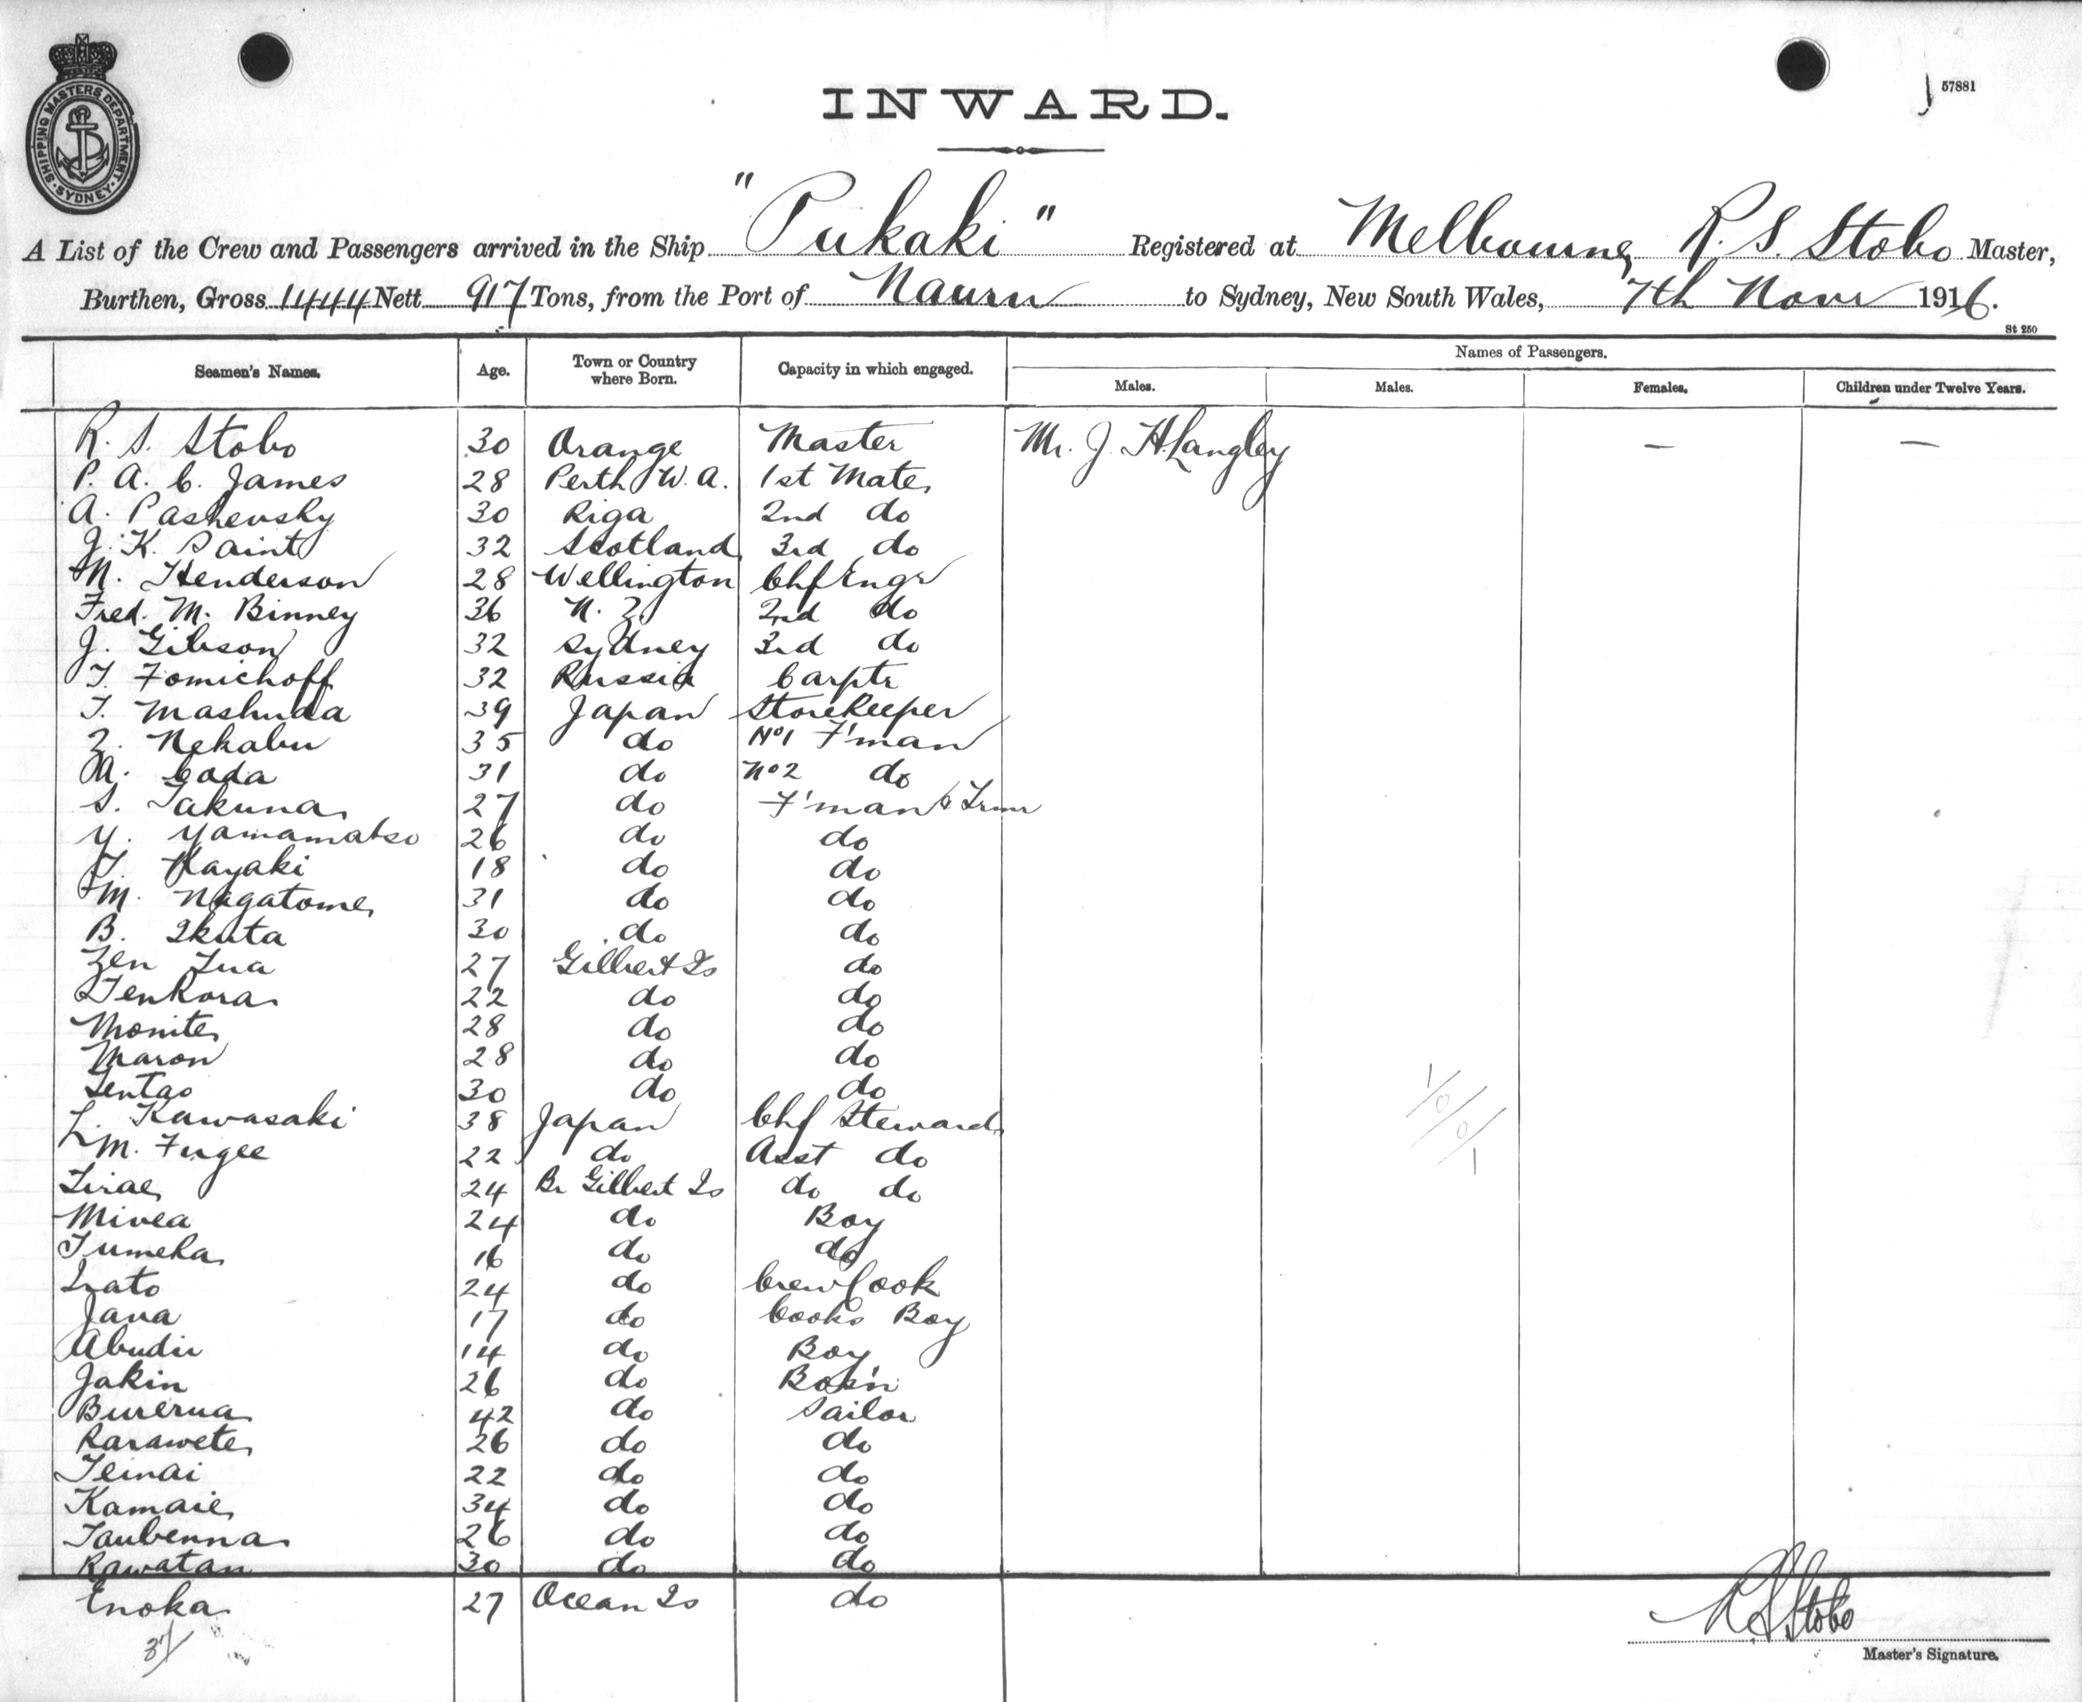 SHIPPING MASTERS DEPARTMENT
SYDNEY
57881
INWARD.
A List of the Crew and Passengers arrived in the Ship "Pukaki" Registered at Melbourne R. S. Stobo Master,
Burthen, Gross 1444 Nett 917 Tons, from the Port of Nauru to Sydney, New South Wales, 7th Novr 1916.
St 250
Seamen's Names. Age. Town or Country where Born. Capacity in which engaged. Names of Passengers.
Males. Males. Females. Children under Twelve Years.
R. S. Stobo 30 Orange Master Mr. J. H. Langley — —
P. A. C. James 28 Perth W. A. 1st Mate
A. Pashevsky 30 Riga 2nd do
J. K. Saint 32 Scotland 3rd do
M. Henderson 28 Wellington Chf Engr
Fred. M. Binney 36 N. Z. 2nd do
J. Gibson 32 Sydney 3rd do
T. Fomichoff 32 Russia Carptr
T. Mashuda 39 Japan Storekeeper
Z. Nekabu 35 do No1 F'man
M. Coda 31 do No2 do
S. Takuna 27 do F'man & Trmr
Y. Yamamatso 26 do do
T. Kayaki 18 do do
M. Nagatome 31 do do
B. Ikuta 30 do do
Zen Tua 27 Gilbert Is do
Tenkora 22 do do
Monite 28 do do
Maron 28 do do
Tentao 30 do do
Z. Kawasaki 38 Japan Chf Steward
M. Fugee 22 do Asst do
Tirae 24 Br Gilbert Is do do
Mivea 24 do Boy
Tumeka 16 do do
Irato 24 do Crew Cook
Java 17 do Cooks Boy
Abudii 14 do Boy
Jakin 26 do Bos'n
Burerua 42 do Sailor
Rarawete 26 do do
Temai 22 do do
Kamaie 34 do do
Taubenna 26 do do
Rawatan 30 do do
Enoka 27 Ocean Is do
37/
1/0/0/1
R S Stobo
Master's Signature.